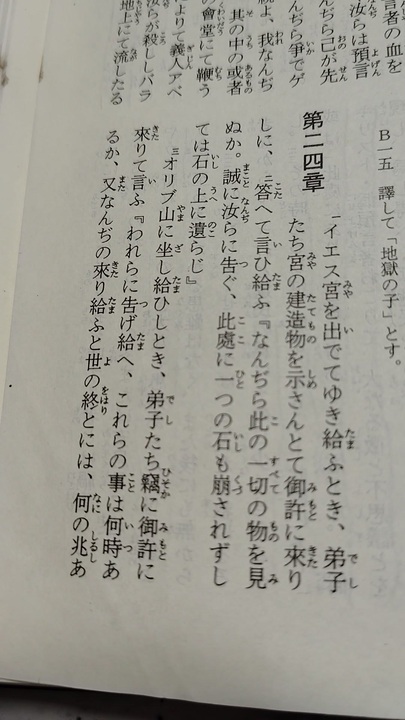 言者の血を
汝らは預言
んぢら己が先
んぢら爭でゲ
よ、我なんぢ
其の中の或者
の會堂にて鞭う
よりて義人アベ
らが殺ししバラ
地上にて流したる
B一五 譯して「地獄の子」とす。
第二四章
一イエス宮を出でてゆき給ふとき、弟子
たち宮の建造物を示さんとて御許に來り
しに、二答へて言ひ給ふ『なんぢら此の一切の物を見
ぬか。誠に汝らに告ぐ、此處に一つの石も崩されずし
ては石の上に遺らじ』
三オリブ山に坐し給ひしとき、弟子たち竊に御許に
來りて言ふ『われらに告げ給へ、これらの事は何時あ
るか、又なんぢの來り給ふと世の終とには、何の兆あ